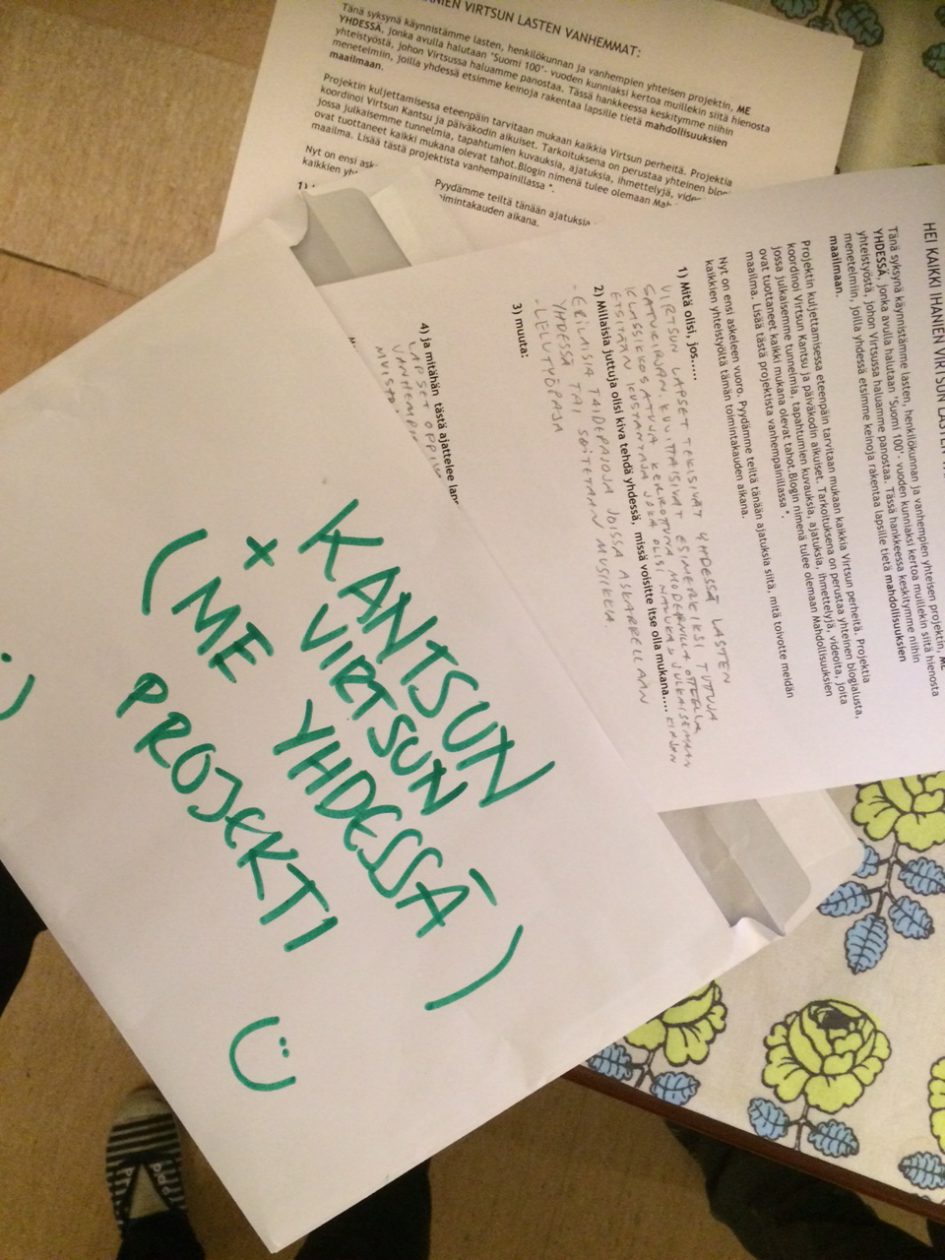 HANIEN VIRTSUN LASTEN VANHEMMAT:
Tänä syksynä käynnistämme lasten, henkilökunnan ja vanhempien yhteisen projektin, ME
YHDESSÄ, jonka avulla halutaan "Suomi 100"- vuoden kunniaksi kertoa muillekin siitä hienosta
yhteistyöstä, johon Virtsussa haluamme panostaa. Tässä hankkeessa keskitymme niihin
menetelmiin, joilla yhdessä etsimme keinoja rakentaa lapsille tietä mahdollisuuksien
maailmaan.
Projektin kuljettamisessa eteenpäin tarvitaan mukaan kaikkia Virtsun perheitä. Projektia
koordinoi Virtsun Kantsu ja päiväkodin aikuiset. Tarkoituksena on perustaa yhteinen blo
jossa julkaisemme tunnelmia, tapahtumien kuvauksia, ajatuksia, ihmettelyjä, vide
ovat tuottaneet kaikki mukana olevat tahot.Blogin nimenä tulee olemaan Mah
maailma. Lisää tästä projektista vanhempainillassa *.
Nyt on ensi aske
Pyydämme teiltä tänään ajatuksia
kaikkien yh
toimintakauden aikana.
1)
HEI KAIKKI IHANIEN VIRTSUN LASTEN
Tänä syksynä käynnistämme lasten, henkilökunnan ja vanhempien yhteisen projektin, ME
YHDESSÄ, jonka avulla halutaan "Suomi 100"- vuoden kunniaksi kertoa muillekin siitä hienosta
yhteistyöstä, johon Virtsussa haluamme panostaa. Tässä hankkeessa keskitymme niihin
menetelmiin, joilla yhdessä etsimme keinoja rakentaa lapsille tietä mahdollisuuksien
maailmaan.
Projektin kuljettamisessa eteenpäin tarvitaan mukaan kaikkia Virtsun perheitä. Projektia
koordinoi Virtsun Kantsu ja päiväkodin aikuiset. Tarkoituksena on perustaa yhteinen blogialusta,
jossa julkaisemme tunnelmia, tapahtumien kuvauksia, ajatuksia, ihmettelyjä, videoita, joita
ovat tuottaneet kaikki mukana olevat tahot.Blogin nimenä tulee olemaan Mahdollisuuksien
maailma. Lisää tästä projektista vanhempainillassa *.
Nyt on ensi askeleen vuoro. Pyydämme teiltä tänään ajatuksia siitä, mitä toivotte meidän
kaikkien yhteistyöltä tämän toimintakauden aikana.
1) Mitä olisi, jos.....
VIRTSUN LAPSET TEKISIVÄT YHDESSÄ LASTEN
SATUKIRJAN. KUVITTAISIVAT ESIMERKIKSI TUTTUJA
KLASSIKKOSATUJA KERROTTUNA MODERNILLA OTTEELLA
ETSITÄÄN KUSTANTAJA JOKA OLISI HALUKAS JULKAISEMAAN KIRJAN
2) Millaisia juttuja olisi kiva tehdä yhdessä, missä voisitte itse olla mukana....
- ERILAISIA TAIDEPAJOJA JOISSA ASKARRELLAAN
YHDESSÄ TAI SOITETAAN MUSIIKKIA
- LELUTYÖPAJA
3) muuta:
4) ja mitähän tästä ajattelee
LAPSET OPPIV
VANHEMPI
MUISTO
KANTSUN
+ VIRTSUN
(ME YHDESSÄ)
PROJEKTI
:)